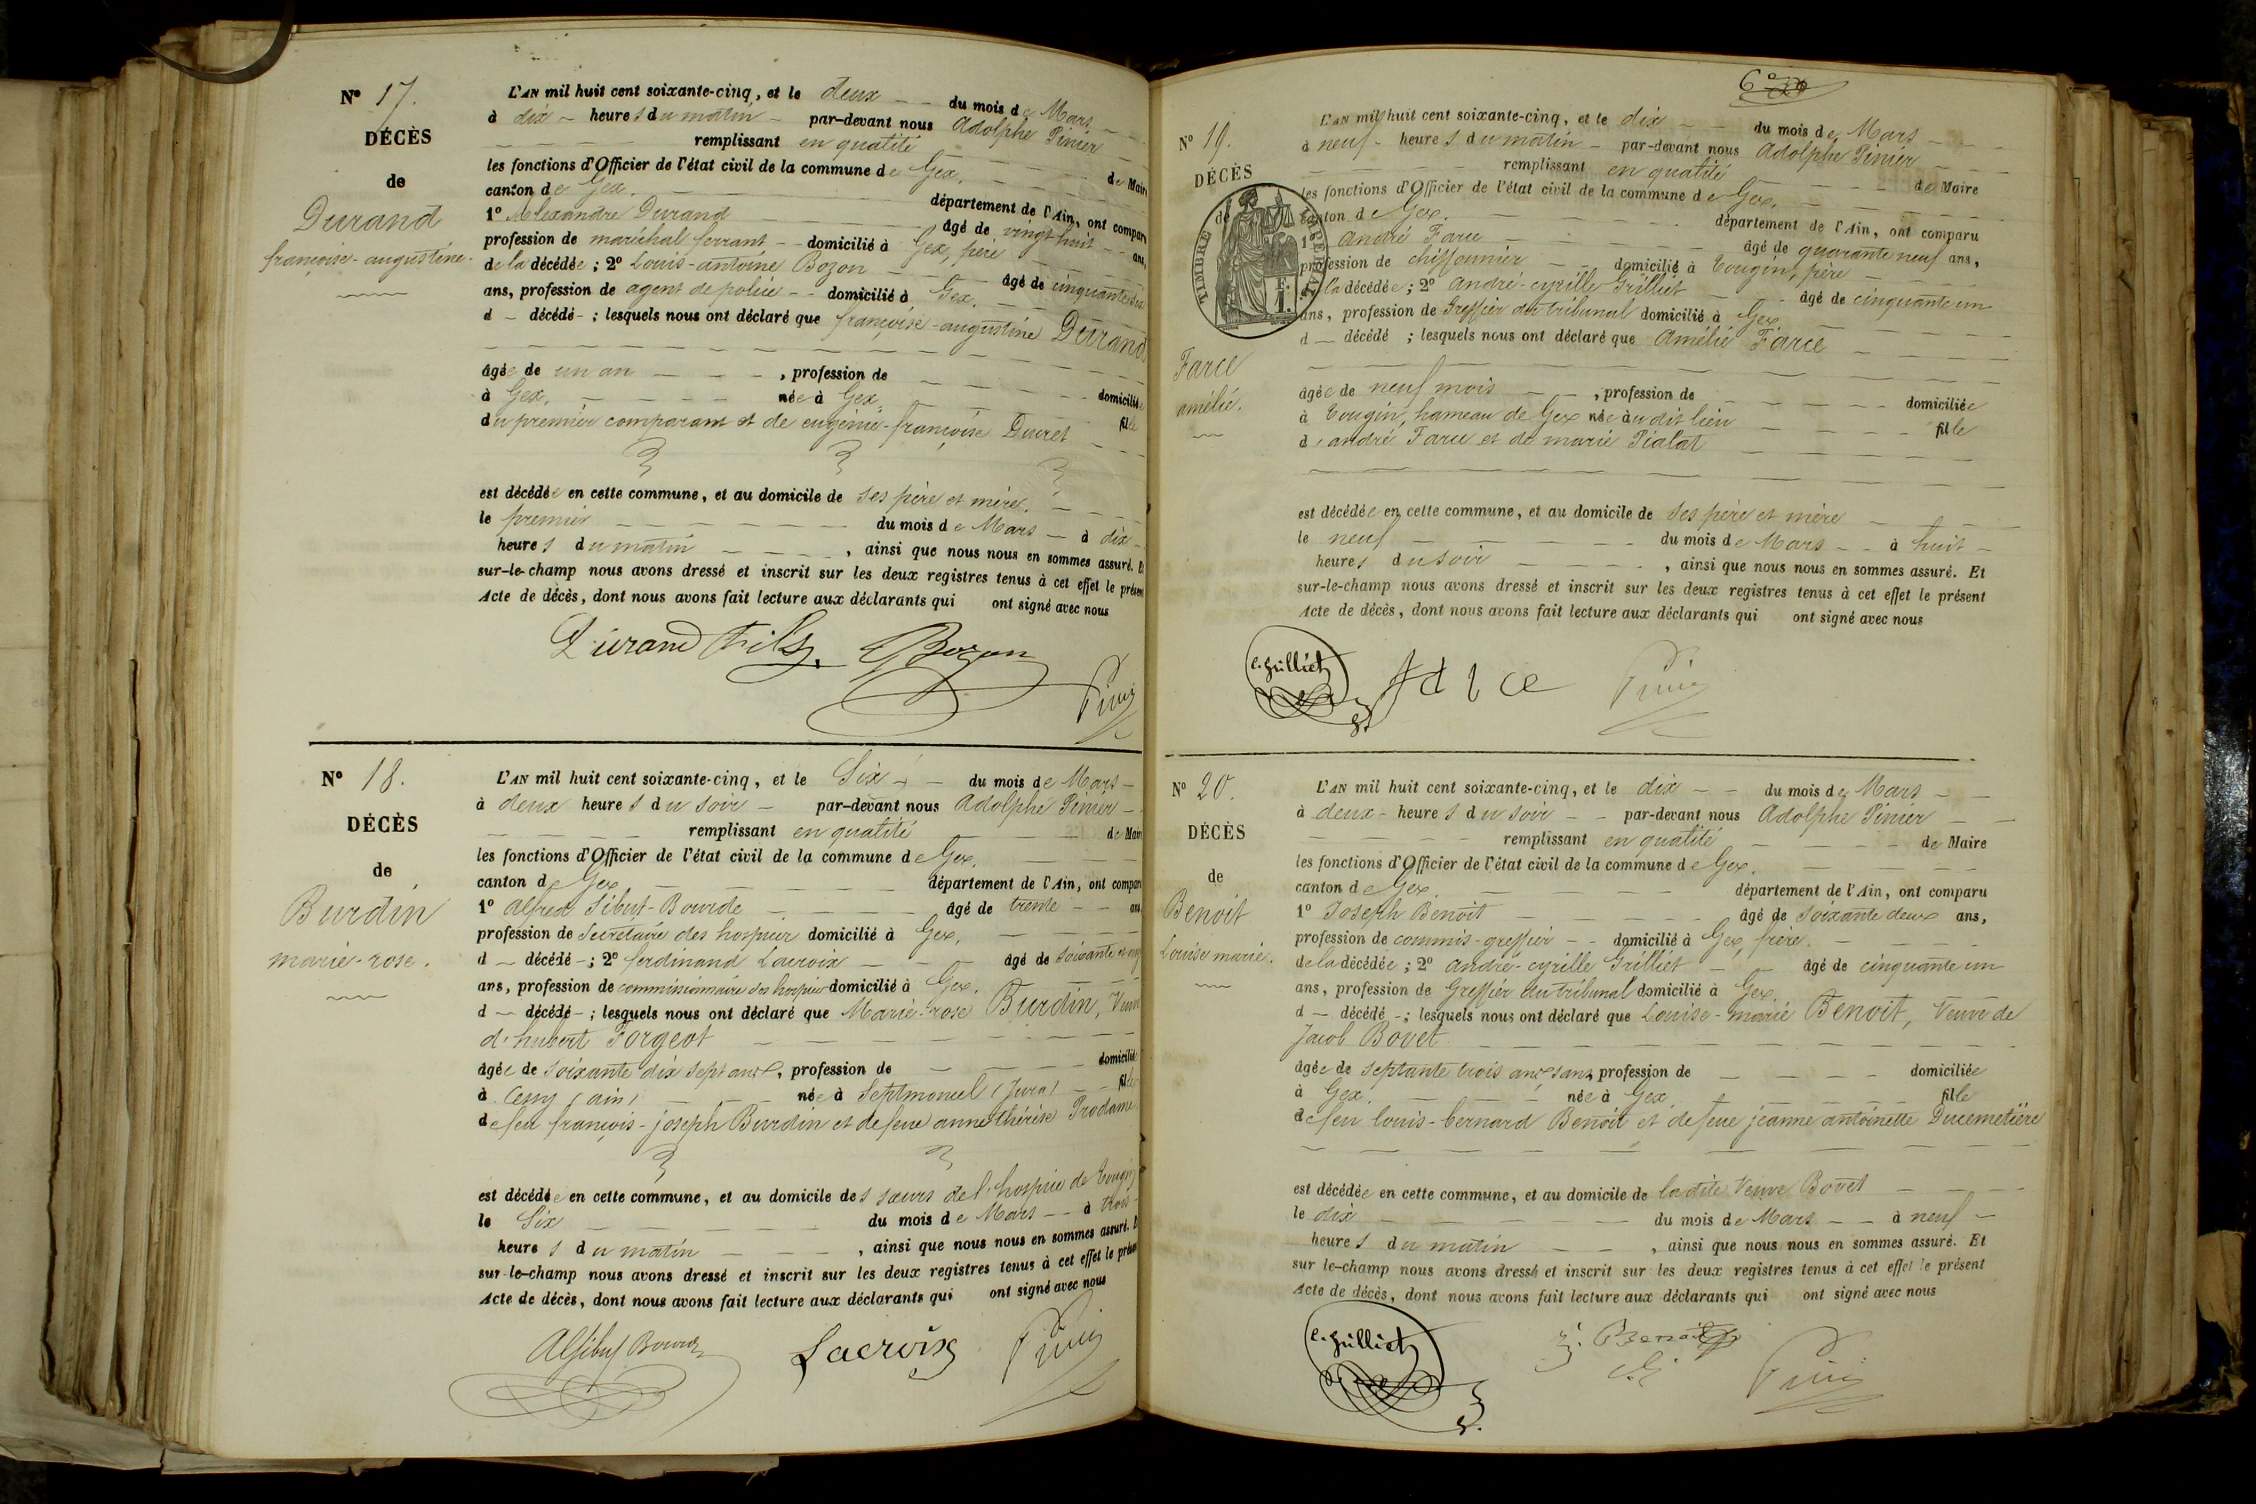 N° 17.
DÉCÈS
de
Durand
françoise-augustine.
L'AN mil huit cent soixante-cinq, et le deux du mois de Mars
à dix heures du matin par-devant nous Adolphe Pinier
remplissant en qualité de Maire
les fonctions d'Officier de l'état civil de la commune de Gex,
canton de Gex. département de l'Ain, ont comparu
1° Alexandre Durand âgé de vingt huit ans,
profession de maréchal ferrant domicilié à Gex, père
de la décédée ; 2° Louis-antoine Bozon âgé de cinquante
ans, profession de agent de police domicilié à Gex.
d décédé ; lesquels nous ont déclaré que françoise-augustine Durand
âgée de un an , profession de
à Gex. née à Gex. domiciliée
du premier comparant et de eugénie-françoise Ducret fille
est décédée en cette commune, et au domicile de ses père et mère.
le premier du mois de Mars à dix
heures du matin , ainsi que nous nous en sommes assuré. Et
sur-le-champ nous avons dressé et inscrit sur les deux registres tenus à cet effet le présent
Acte de décès, dont nous avons fait lecture aux déclarants qui ont signé avec nous
Durand fils. Bozon
Pinier
N° 18.
DÉCÈS
de
Burdin
marie-rose.
L'AN mil huit cent soixante-cinq, et le Six du mois de Mars
à deux heures du soir par-devant nous Adolphe Pinier
remplissant en qualité de Maire
les fonctions d'Officier de l'état civil de la commune de Gex.
canton de Gex département de l'Ain, ont comparu
1° Alfred Sibut-Bourde âgé de trente ans
profession de Secrétaire des hospices domicilié à Gex.
d décédé ; 2° ferdinand Lacroix âgé de soixante
ans, profession de commissionnaire des hospices domicilié à Gex.
d décédé ; lesquels nous ont déclaré que Marie-rose Burdin, Veuve
d'hubert Forgeot
âgée de soixante dix sept ans, profession de domiciliée
à Cessy (ain) née à Septmoncel (Jura) fille
de feu françois-joseph Burdin et de feue anne thérèse Prodame
est décédée en cette commune, et au domicile des sœurs de l'hospice de Tougin
le Six du mois de Mars à trois
heures du matin , ainsi que nous nous en sommes assuré. Et
sur-le-champ nous avons dressé et inscrit sur les deux registres tenus à cet effet le présent
Acte de décès, dont nous avons fait lecture aux déclarants qui ont signé avec nous
Al Sibut Bourde Lacroix Pinier
6°
N° 19.
DÉCÈS
de
TIMBRE IMPÉRIAL
F.
1.
Farce
amélie.
L'AN mil huit cent soixante-cinq, et le dix du mois de Mars
à neuf heures du matin par-devant nous Adolphe Pinier
remplissant en qualité de Maire
les fonctions d'Officier de l'état civil de la commune de Gex.
canton de Gex. département de l'Ain, ont comparu
1° André Farce âgé de quarante neuf ans,
profession de chiffonnier domicilié à Tougin, père
de la décédée ; 2° André-cyrille Grilliet âgé de cinquante un
ans, profession de Greffier du tribunal domicilié à Gex
d décédé ; lesquels nous ont déclaré que Amélie Farce
âgée de neuf mois , profession de domiciliée
à Tougin, hameau de Gex née audit lieu fille
d'andré Farce et de marie Pialat
est décédée en cette commune, et au domicile de ses père et mère
le neuf du mois de Mars à huit
heures du soir , ainsi que nous nous en sommes assuré. Et
sur-le-champ nous avons dressé et inscrit sur les deux registres tenus à cet effet le présent
Acte de décès, dont nous avons fait lecture aux déclarants qui ont signé avec nous
C. Grilliet Pinier
N° 20.
DÉCÈS
de
Benoit
Louise marie.
L'AN mil huit cent soixante-cinq, et le dix du mois de Mars
à deux heures du soir par-devant nous Adolphe Pinier
remplissant en qualité de Maire
les fonctions d'Officier de l'état civil de la commune de Gex.
canton de Gex. département de l'Ain, ont comparu
1° Joseph Benoit âgé de soixante deux ans,
profession de commis-greffier domicilié à Gex, frère.
de la décédée ; 2° André-cyrille Grilliet âgé de cinquante un
ans, profession de Greffier du tribunal domicilié à Gex.
d décédé ; lesquels nous ont déclaré que Louise-marie Benoit, Veuve de
Jacob Bovet
âgée de septante trois ans, sans profession de domiciliée
à Gex. née à Gex fille
de feu louis-bernard Benoit et de feue jeanne antoinette Ducemetière
est décédée en cette commune, et au domicile de ladite Veuve Bovet
le dix du mois de Mars à neuf
heures du matin , ainsi que nous nous en sommes assuré. Et
sur le-champ nous avons dressé et inscrit sur les deux registres tenus à cet effet le présent
Acte de décès, dont nous avons fait lecture aux déclarants qui ont signé avec nous
C. Grilliet Benoit Pinier